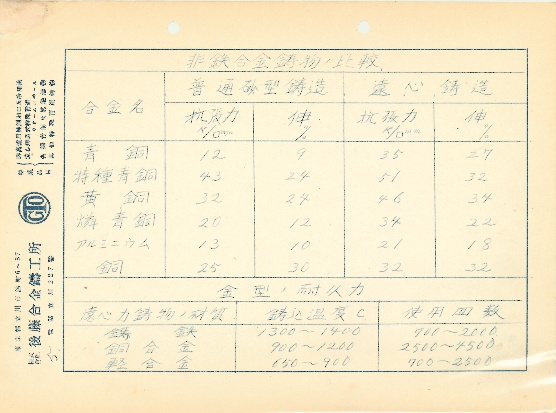 非鉄合金鋳物ノ比較
合金名 普通砂型鋳造 遠心鋳造
抗張力 伸 % 抗張力 伸 %
青銅 12 9 35 27
特種青銅 43 24 51 32
黄銅 32 24 46 34
燐青銅 20 12 34 22
アルミニウム 13 10 21 18
銅 25 30 32 32
金型ノ耐久力
遠心力鋳物ノ材質 鋳込温度C 使用回数
鋳鉄 1300~1400 900~2000
銅合金 900~1200 2500~4500
軽合金 650~900 700~2500
GTO
後藤合金鑄工所